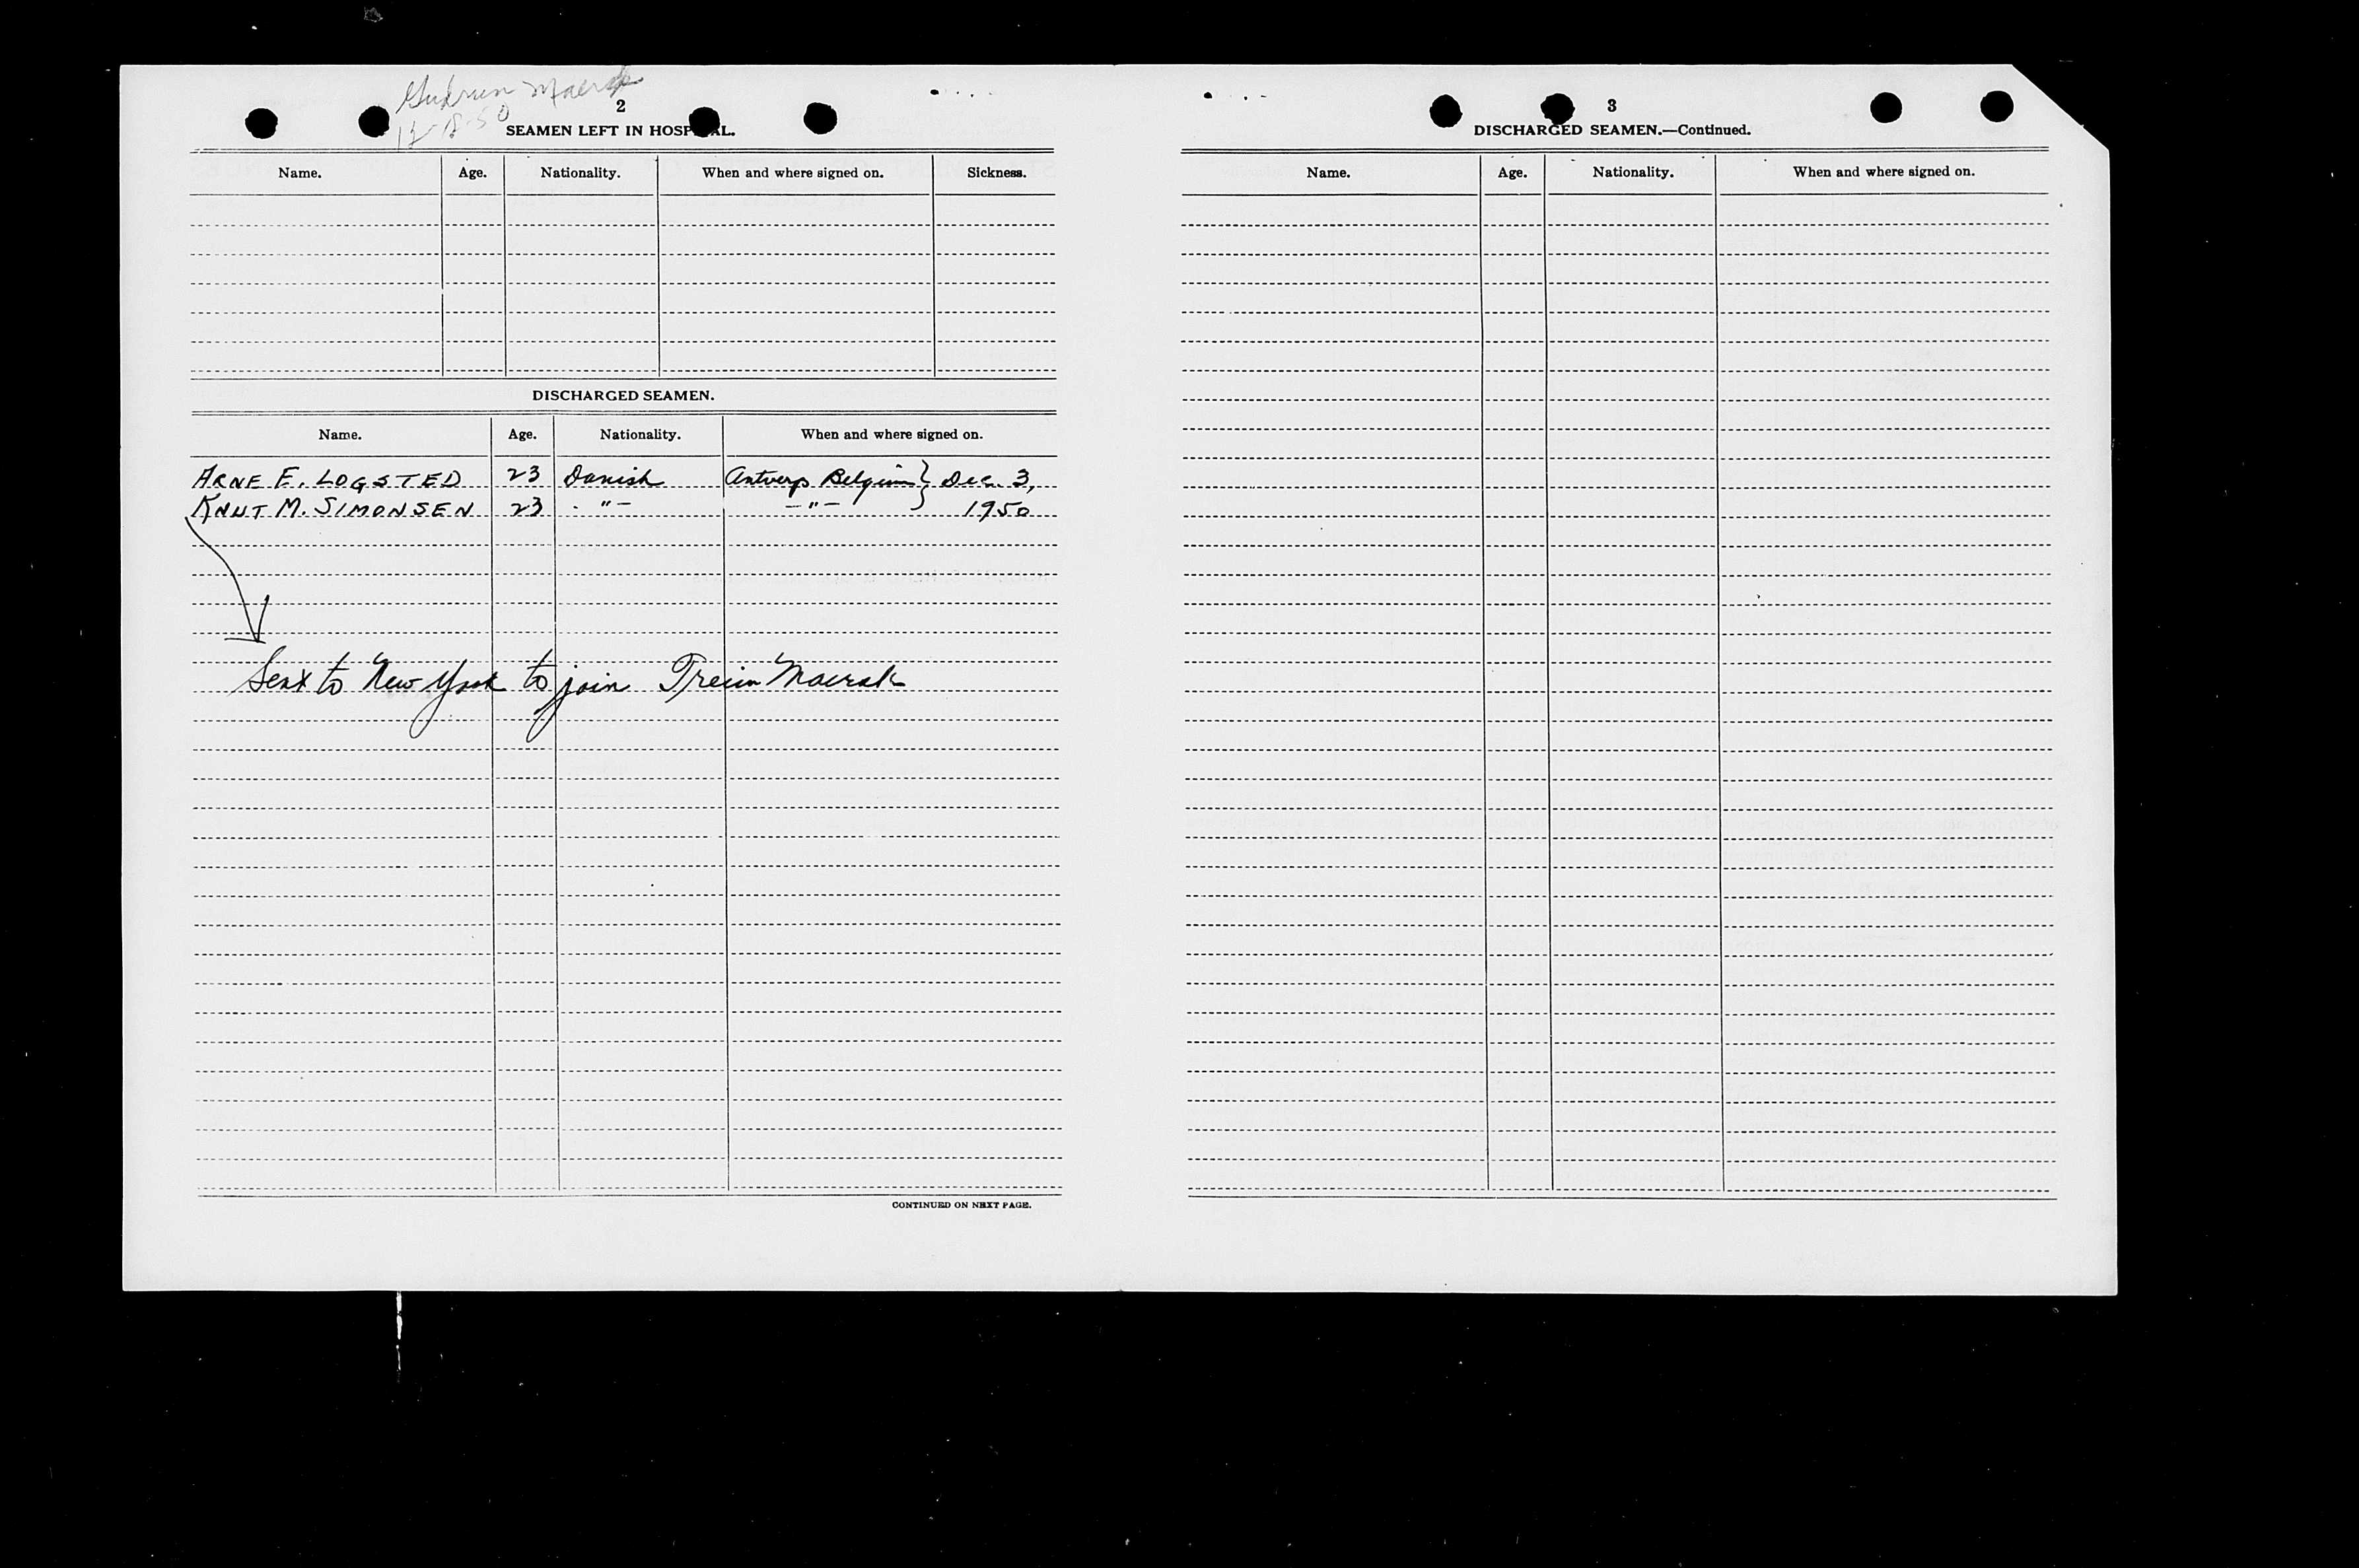 Gudrun Maersk
12-18-50
2
SEAMEN LEFT IN HOSPITAL.
Name. Age. Nationality. When and where signed on. Sickness.
DISCHARGED SEAMEN.
Name. Age. Nationality. When and where signed on.
ARNE E. LOGSTED 23 Danish Antwerp Belgium } Dec. 3,
KNUT M. SIMONSEN 23 " — — " — 1950
Sent to New York to join Maersk
CONTINUED ON NEXT PAGE.
3
DISCHARGED SEAMEN.—Continued.
Name. Age. Nationality. When and where signed on.